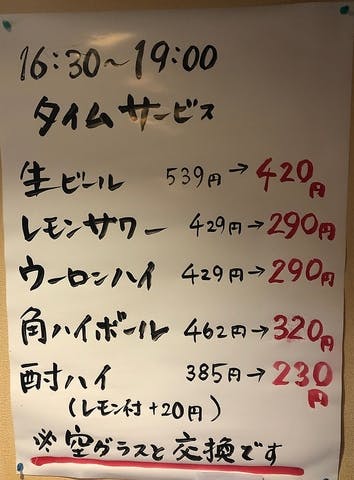 16:30〜19:00
タイムサービス
生ビール 539円→420円
レモンサワー 429円→290円
ウーロンハイ 429円→290円
角ハイボール 462円→320円
酎ハイ 385円→230円
(レモン付+20円)
※空グラスと交換です